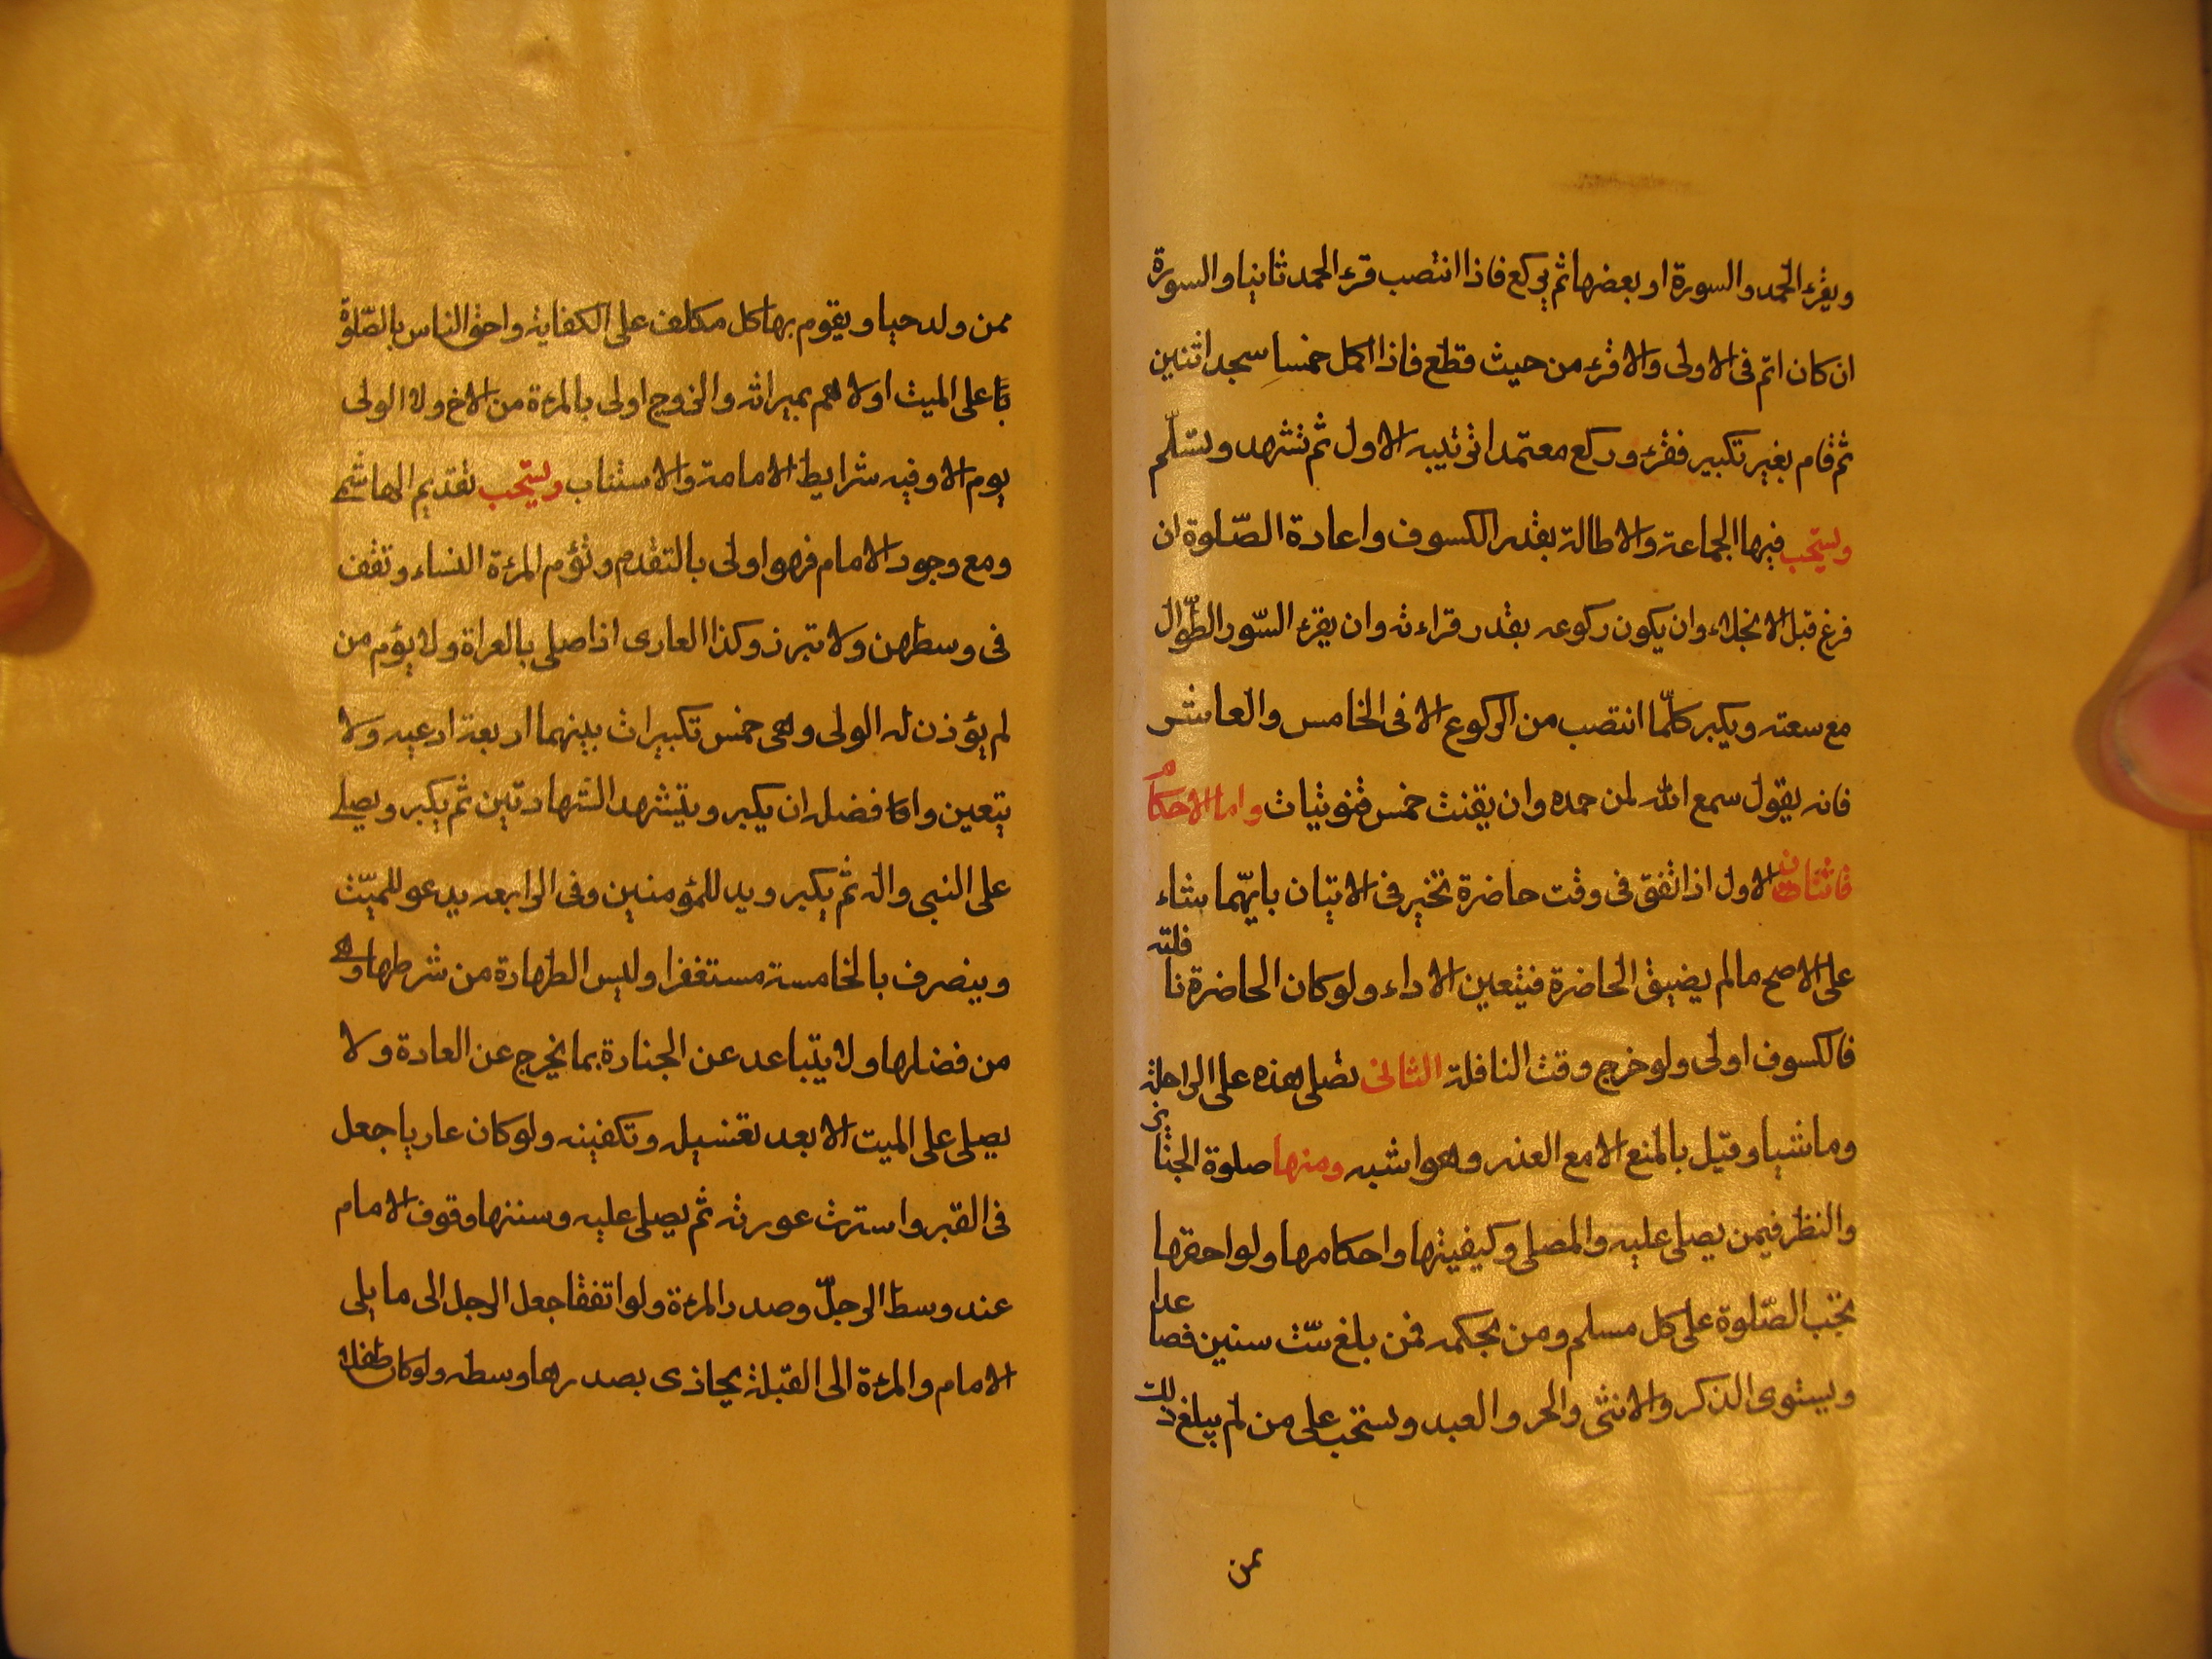 ويقرء الحمد والسورة او بعضها ثم يركع فاذا انتصب قرء الحمد ثانيا والسورة
ان كان اتم فى الاولى والا قرء من حيث قطع فاذا اكمل خمسا سجد اثنتين
ثم قام بغير تكبير فقرء وركع معتمدا ترتيبه الاول ثم تشهد وتسلّم
ويستحب فيها الجماعة والاطالة بقدر الكسوف واعادة الصّلوة ان
فرغ قبل الانجلاء وان يكون ركوعه بقدر قراءته وان يقرء السّور الطّوال
مع سعته ويكبر كلّما انتصب من الركوع الا فى الخامس والعاشر
فانه يقول سمع الله لمن حمده وان يقنت خمس قنوتيات واما الاحكام
فاثنان الاول اذا اتفق فى وقت حاضرة تخير فى الاتيان بايهّما شاء
على الاصح مالم يضيق الحاضرة فيتعين الاداء ولو كان الحاضرة نافلته
فالكسوف اولى ولو خرج وقت النافلة الثانى تصلى هذه على الراحلة
وماشيا وقيل بالمنع الا مع العذر وهو اشبه ومنها صلوة الجنايز
والنظر فيمن يصلى عليه والمصلى وكيفيتها واحكامها ولواحقها
تجب الصّلوة على كل مسلم ومن بحكمه فمن بلغ ستّ سنين فصاعدا
ويستوى الذكر والانثى والحر والعبد وتستحب على من لم يبلغ ذلك
ممن
ممن ولد حيا ويقوم بها كل مكلف على الكفاية واحق الناس بالصّلوة
على الميت اولاهم بميراثه والزوج اولى بالمرءة من الاخ ولا الولى
يوم الا وفيه شرايط الامامة والا استناب ويستحب تقديم الهاشمى
ومع وجود الامام فهو اولى بالتقدم وتؤم المرءة النساء وتقف
فى وسطهن ولا تبرز وكذا العارى اذا صلى بالعراة ولا يؤم من
لم يؤذن له الولى وهى خمس تكبيرات بينهما اربعة ادعيه ولا
يتعين وا فضله ان يكبر ويتشهد الشهادتين ثم يكبر ويصلى
على النبى واله ثم يكبر ويد للمؤمنين وفى الرابعه يدعو للميّت
وينصرف بالخامسة مستغفرا وليس الطهارة من شرطها وهى
من فضلها ولا يتباعد عن الجنازة بما يخرج عن العادة ولا
يصلى على الميت الا بعد تغسيله وتكفينه ولو كان عاريا جعل
فى القبر واسترت عورته ثم يصلى عليه وسننها وقوف الامام
عند وسط الرجلّ وصدر المرءة ولو اتفقا جعل الرجل الى ما يلى
الامام والمرءة الى القبلة يحاذى بصدرها وسطه ولو كان طفلا